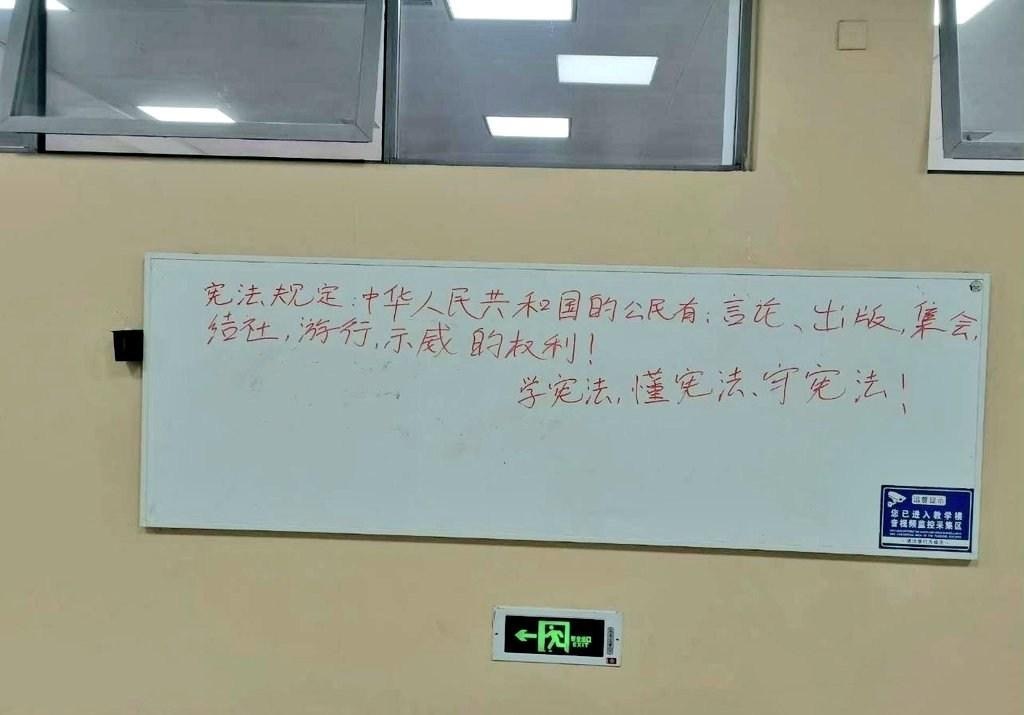 宪法规定:中华人民共和国的公民有:言论、出版,集会,
结社,游行,示威的权利!
学宪法,懂宪法、守宪法!
温馨提示
您已进入教学楼
音视频监控采集区
安全出口
EXIT